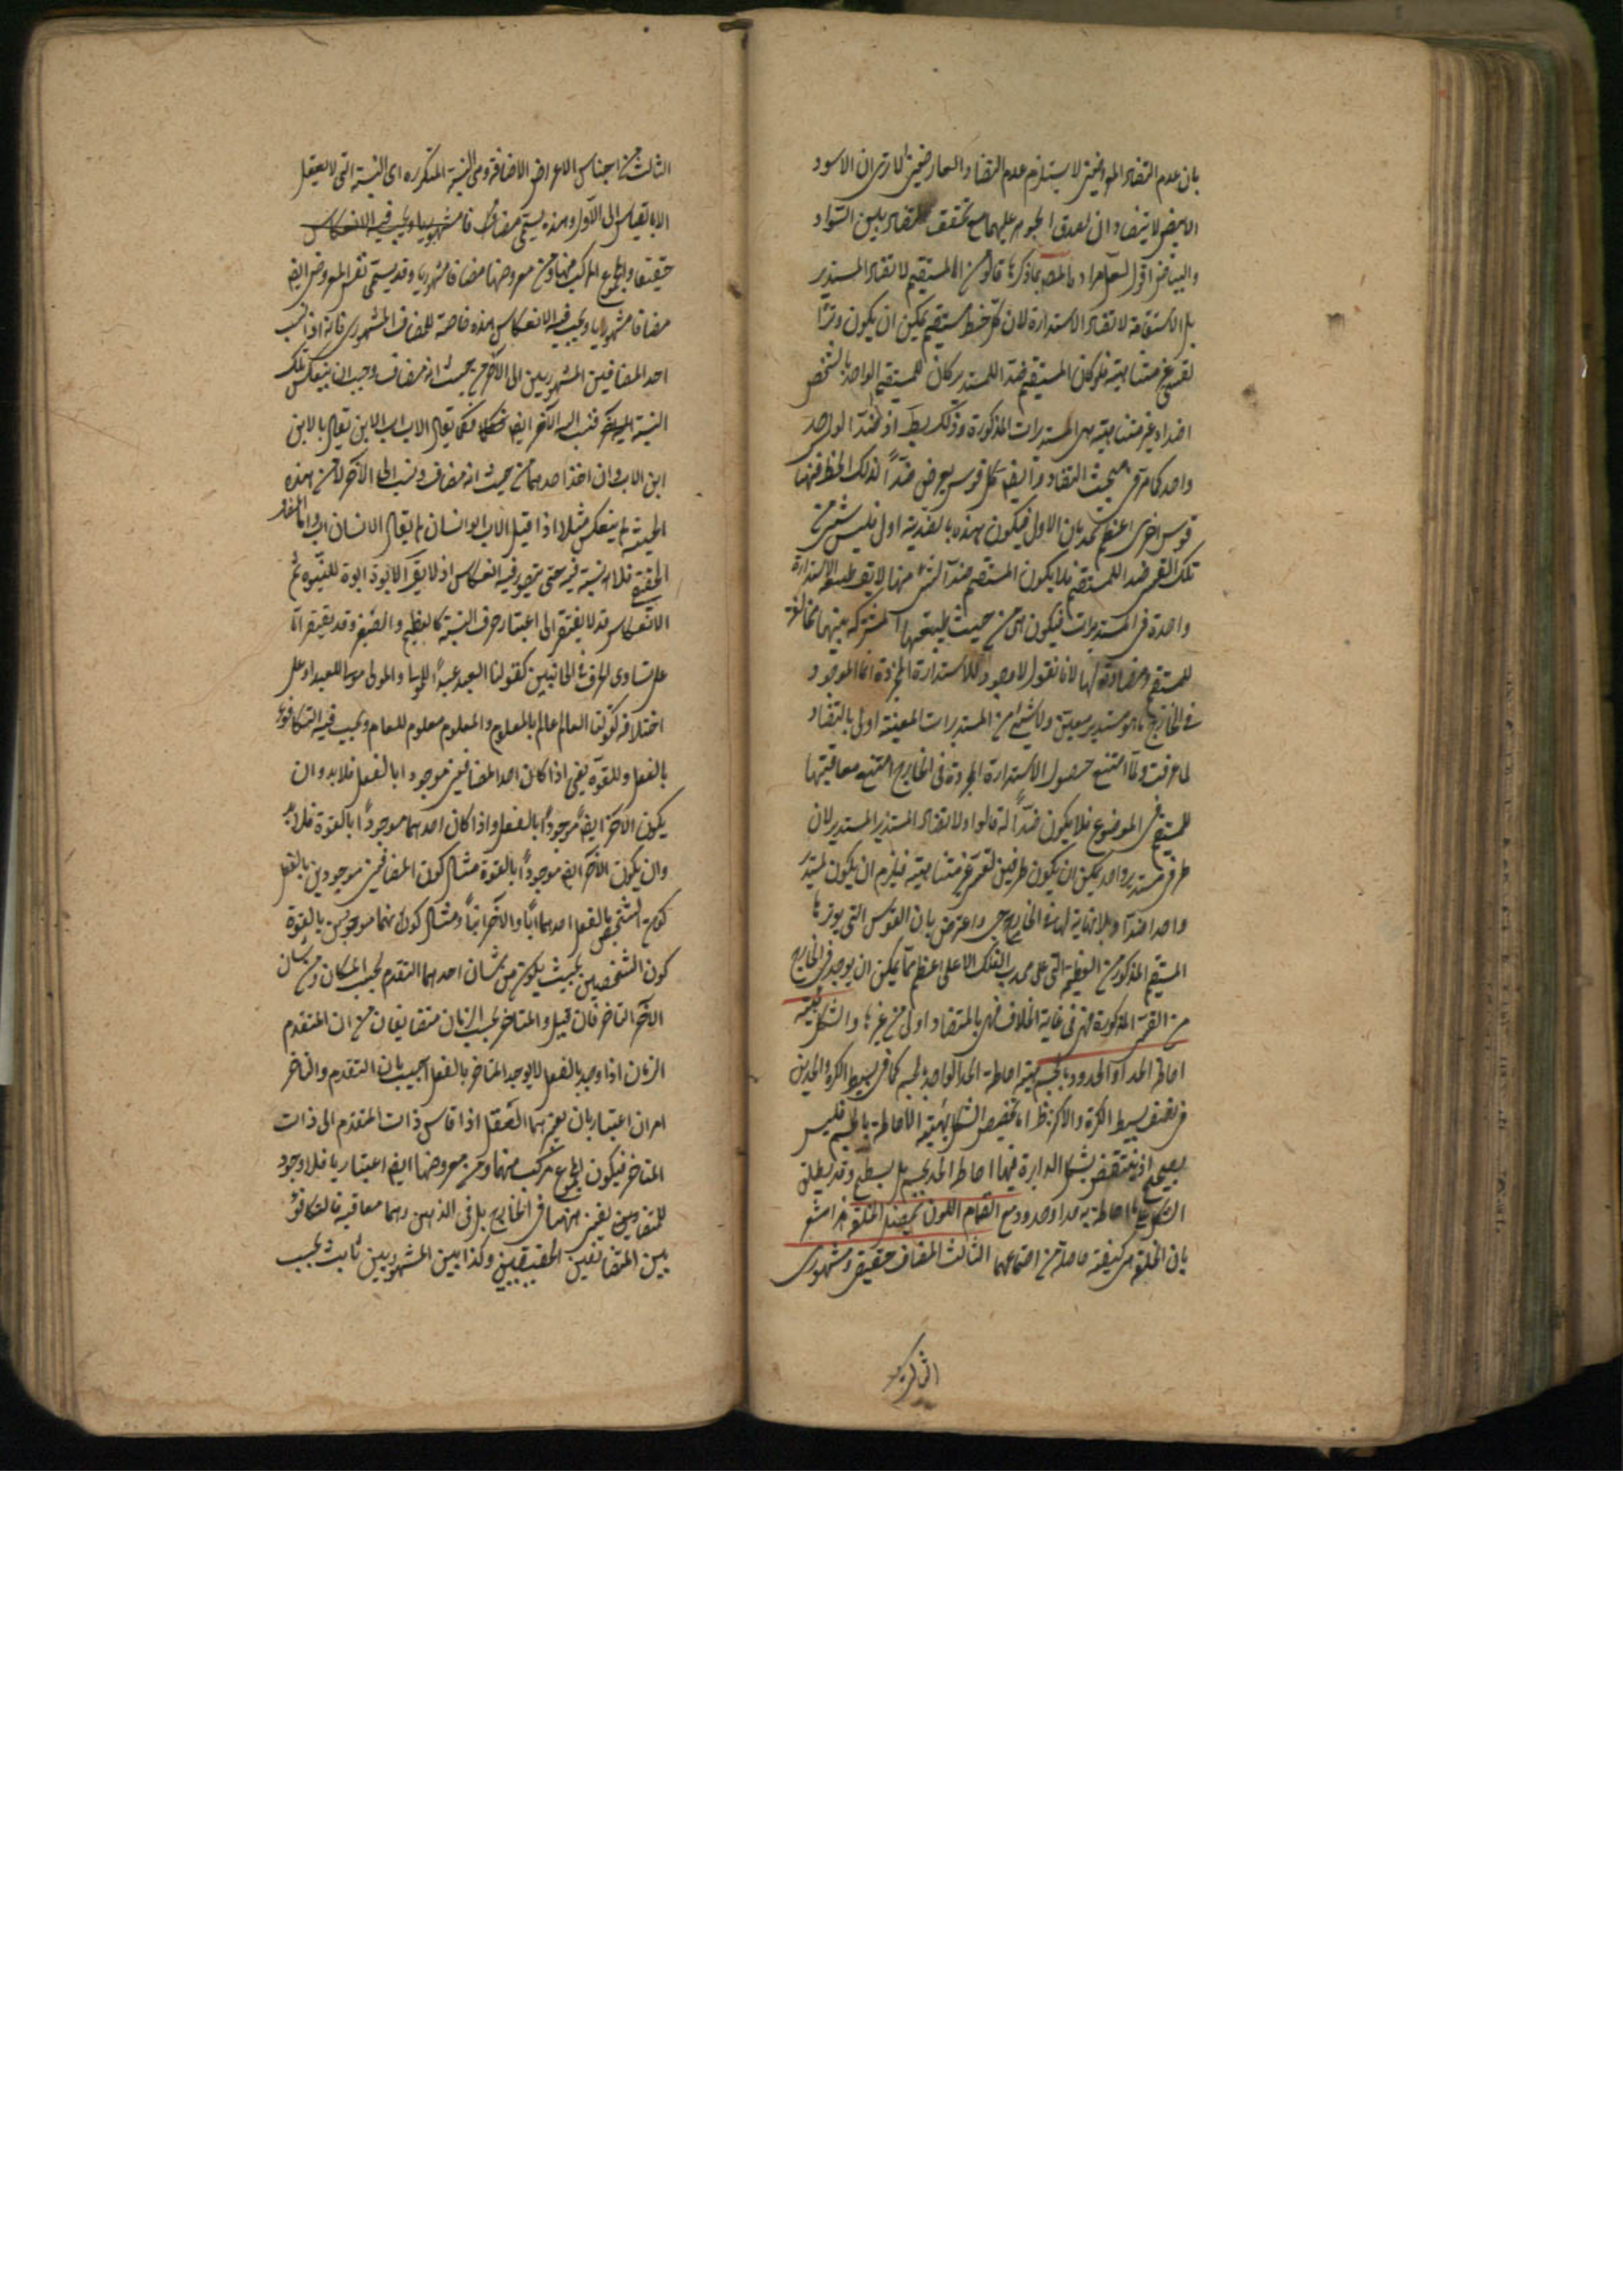 بان عدم التضاد المعروضين لا يستلزم عدم التضاد العارضين الا ترى ان الاسود
الابيض لا يتضادان لصدق الجوهر عليهما مع تحقق التضاد بين السواد
والبياض اقول لعل مراد المص بما ذكرها قالوا من ان المستقيم لا تضاد المستدير
بل الاستقامة لا تضاد الاستدارة لان كل خط مستقيم يمكن ان يكون وترا
لقسي غير متناهية فلو كان المستقيم ضد اللمستدير كان للمستقيم الواحد بالشخص
اضداد غير متناهية هى المستديرات المذكورة وذلك بط اذ ضد الواحد
واحد كما مر فى مبحث التضاد وايضا كل قوس يعرض ضداً لذلك الخط فمنها
قوس اخرى اعظم تحدبا من الاول فيكون هذه بالضدية اولى فليس شىء من
تلك القسى ضد اللمستقيم فلا يكون المستقيم ضدا لشىء منها لا يق طبيعة الاستدارة
واحدة فى المستديرات فيكون هى من حيث طبيعتها المشتركة بينها مخالفة
للمستقيم ومضادة لها لانا نقول لا وجود للاستدارة المجردة انما الموجود
فى الخارج هو مستدير معين ولا شىء من المستديرات المعينة اولى بالتضاد
لما عرفت ولما امتنع حصول الاستدارة المجردة فى الخارج امتنع معاقبتها
للمستقيم فى الموضوع فلا يكون ضداً له قالوا ولا تضاد المستدير المستدير لان
طرفى مستدير واحد يمكن ان يكون طرفين لقسى غير متناهية فيلزم ان يكون لمستدير
واحد اضداد بلا نهاية لها فى الخارج واعترض بان القوس التى يوترها
المستقيم المذكور من العظيمة التى على محدب الفلك الاعلى اعظم مما يمكن ان يوجد فى الخارج
من القسى المذكورة فهى فى غاية الخلاف فهى بالتضاد اولى من غيرها والشكل هيئة
احاطة الحد او الحدود بالجسم هيئة احاطة الحد الواحد بالجسم كما فى بسيط الكرة والحدين
فى نصف بسيط الكرة والاكثر نظر اما تخصيص الشكل بهيئة الاحاطة بالجسم فليس
بصحيح اذ ينتقض بشكل الدايرة فيها احاط الحد بجسم بل بسطح وقد يطلق
الشكل على ما احاطه به حد او حدود ومع انضمام اللون يحصل الخلقة هذا مشعر
بان الخلقة هى كيفية حاصلة من اجتماعهما الثالث المضاف حقيقى ومشهورى
الثالث من اجناس الاعراض الاضافة وهى النسبة المتكررة اى النسبة التى لا يعقل
الا بالقياس الى الاول وهذه يسمى مضافا مشهوريا ويجب فيه الانعكاس
حقيقيا والمجموع المركب منها ومن معروضها مضافا مشهوريا وقد يسمى نفس المعروض ايضا
مضافا مشهوريا ويجب فيه الانعكاس هذه خاصة للمضاف المشهورى فانه اذا نسب
احد المضافين المشهوريين الى الآخر من حيث انه مضاف وجب ان ينعكس تلك
النسبة فنسب اليه الآخر ايضا فكما يقال الاب اب الابن يقال الابن
ابن الاب وان اخذ احدهما من حيث انه مضاف ونسب الى الآخر لا من هذه
الحيثية لم ينعكس مثلا اذا قيل الاب ابو انسان لم يقال الانسان اب واما المضاف
الحقيقى فلا نسبة فيه حتى يتصور فيه انعكاس اذ لا يق الابوة ابوة للبنوة ثم
الانعكاس قد لا يفتقر الى اعتبار حرف النسبة كالعظيم والصغير وقد يفتقر اما
على تساوى الحرف فى الجانبين كقولنا العبد عبد للمولى والمولى مولى للعبد او على
اختلافه كقولنا العالم عالم بالمعلوم والمعلوم معلوم للعالم ويجب فيه التكافؤ
بالفعل وللقوة يعنى اذا كان احد المضافين موجودا بالفعل فلا بد وان
يكون الآخر ايضا موجوداً بالفعل واذا كان احدهما موجوداً بالقوة فلا بد
وان يكون الآخر ايضا موجوداً بالقوة مثال كون المضافين موجودين بالفعل
كون الشخصين بالفعل احدهما اباً والآخر ابناً ومثال كونهما موجودين بالقوة
كون الشخصين بحيث يكون من شان احدهما التقدم بحسب المكان ومن شان
الآخر التاخر فان قيل المتاخر بحسب الزمان متضايفان مع ان المتقدم
الزمان اذا وجد بالفعل لا يوجد المتاخر بالفعل اجيب بان التقدم والتاخر
امران اعتباريان يعتبرهما العقل اذا قاس ذات المتقدم الى ذات
المتاخر فيكون المجموع المركب منهما ومن معروضها ايضا اعتباريا فلا وجود
للمتضايفين منهما فى الخارج بل فى الذهن وهما معا فيه فالتكافؤ
بين المتضايفين الحقيقيين وكذا بين المشهوريين ثابت بحسب